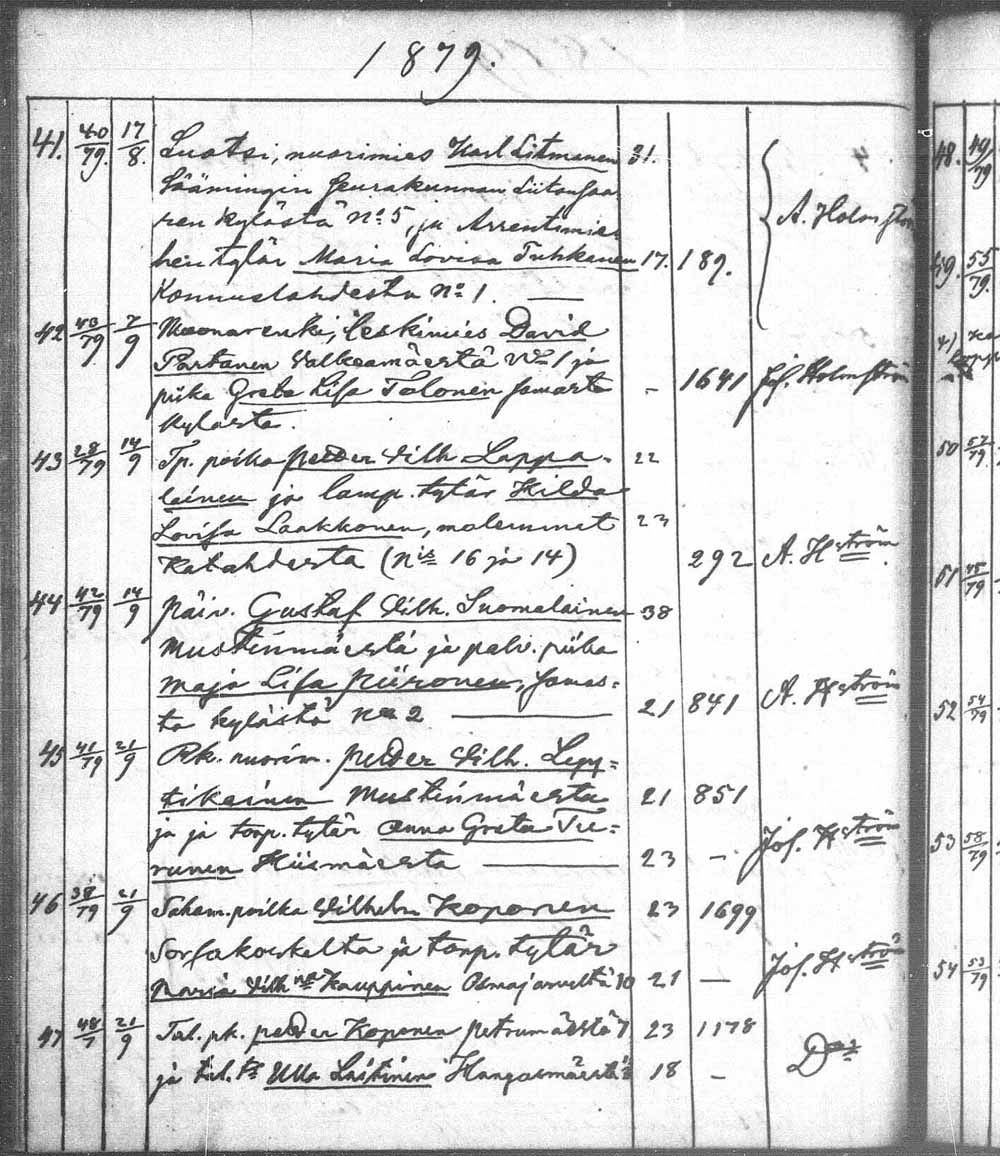 1879.
41. 40/79. 17/8. Luotsi, nuorimies Karl Litmanen 31.
Säämingin seurakunnan Liitonsaa-
ren kylästä No 5, ja Arrentimie-
hen tytär Maria Lovisa Tuhkanen 17. 189. A. Holmström
Konnuslahdesta No 1.
42 43/79 7/9 Muonarenki, leskimies David
Partanen Valkeamäestä No 1 ja
piika Greta Lisa Tolonen samasta - 1641 Jos. Holmström
kylästä.
43 28/79 14/9 Tp. poika Petter Vilh. Lappa- 22
lainen ja lamp. tytär Hilda
Lovisa Laakkonen, molemmat 23
Katahdesta (Nis 16 ja 14) 292 A. Hström
44 42/79 14/9 Päiv. Gustaf Vilh. Suomalainen 38
Mustinmäestä ja palv. piika
Maja Lisa Piironen, samas-
ta kylästä No 2 21 841 A. Hström
45 41/79 21/9 Rk. nuorim. Petter Vilh. Lepp-
Mustinmäestä 21 851
ja ja torp. tytär Anna Greta Vii-
runen Hiismäestä 23 - Jos. Hström
46 38/79 21/9 poika Vilhelm Koponen 23 1699
Sorsakoskelta ja torp. tytär
Maria Vilhna Kauppinen Osmajärveltä 10 21 - Jos. Hström
47 48/7 21/9 Tal. pk. Petter Koponen Petrumäestä 7 23 1178
ja tal. tr Ulla Laitinen Hangasmäestä 18 - Do
48. 49/79
49. 55/79.
50 57/79
51 45/79
52 54/79
53 58/79
54 53/79